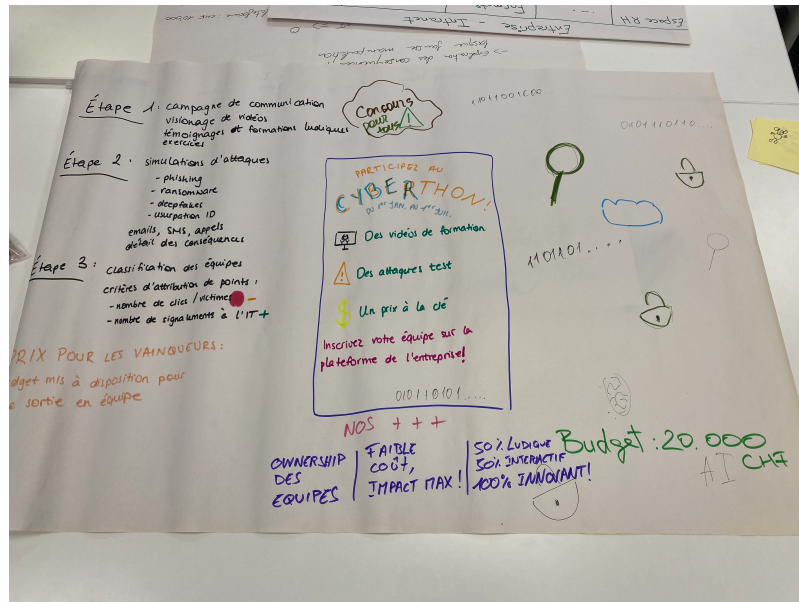 Espace RH
Entreprise - Intranet
→ explication des conséquences
Étape 1 : campagne de communication
visionage de vidéos
témoignages et formations ludiques
exercices
Étape 2 : simulations d'attaques
- phishing
- ransomware
- deepfakes
- usurpation ID
emails, SMS, appels
détail des conséquences
Étape 3 : classification des équipes
critères d'attribution de points :
- nombre de clics / victimes -
- nombre de signalements à l'IT +
PRIX POUR LES VAINQUEURS :
mis à disposition pour
sortie en équipe
Concours
pour
tous
!
PARTICIPEZ AU
CYBERTHON!
DU 1er JAN. AU 1er JUIL.
Des vidéos de formation
Des attaques test
$ Un prix à la clé
Inscrivez votre équipe sur la
plateforme de l'entreprise!
010110101....
11011001000
0101110110...
1101101....
NOS + + +
OWNERSHIP
DES
EQUIPES
FAIBLE
COÛT,
IMPACT MAX !
50% LUDIQUE
50% INTERACTIF
100% INNOVANT!
Budget : 20.000
CHF
AI